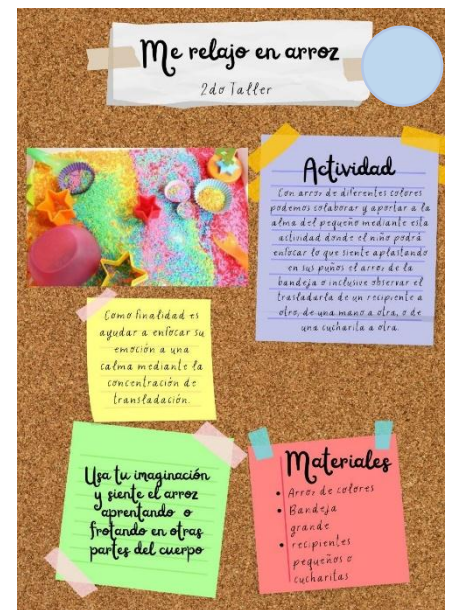 Me relajo en arroz
2do Taller
Actividad
Con arroz de diferentes colores
podemos colaborar y aportar a la
alma del pequeño mediante esta
actividad donde el niño podrá
enfocar lo que siente aplastando
en sus puños el arroz de la
bandeja o inclusive observar el
trasladarla de un recipiente a
otro, de una mano a otra, o de
una cucharita a otra.
Como finalidad es
ayudar a enfocar su
emoción a una
calma mediante la
concentración de
transladación.
Usa tu imaginación
y siente el arroz
aprentando o
frotando en otras
partes del cuerpo
Materiales
• Arroz de colores
• Bandeja
grande
• recipientes
pequeños o
cucharitas